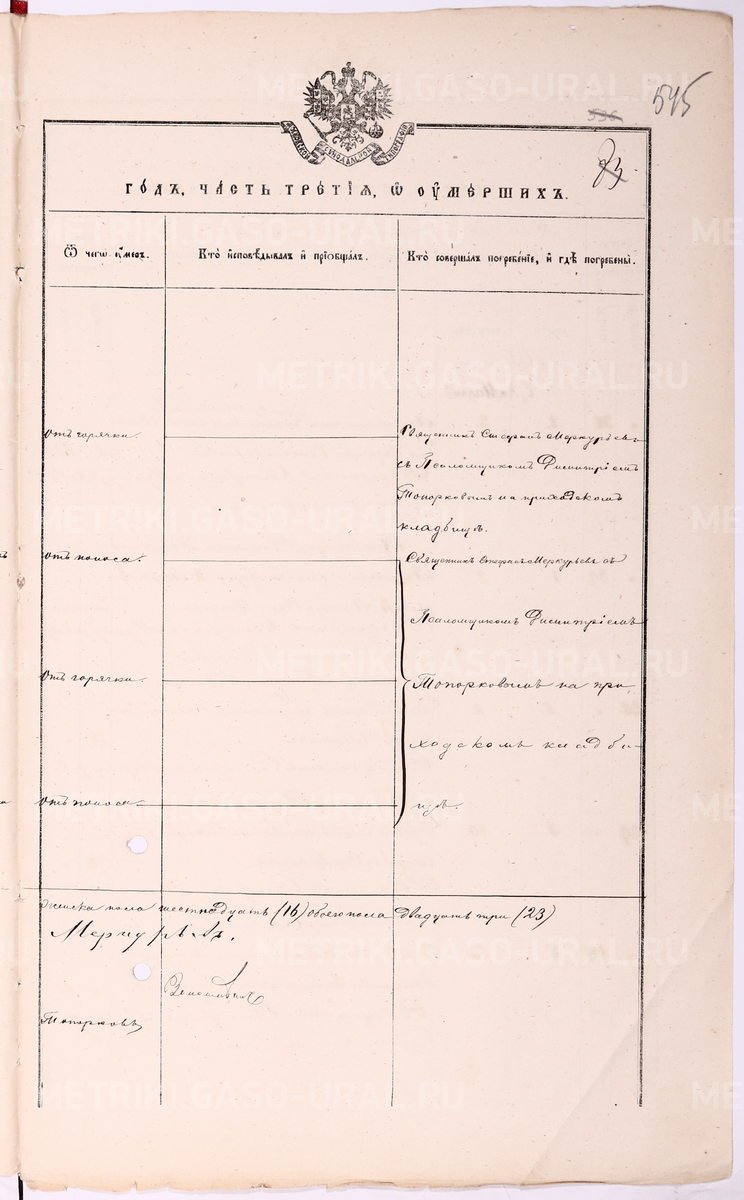 545
536
23
МОСКОВСК. СУНОДАЛЬНОЙ ТИПОГРАФІИ
ГО́ДЪ, ЧА́СТЬ ТРЕ́ТІѦ, Ѿ ОУ҆МЕ́РШИХЪ.
Ѿ чегѡ̀ оу҆́меръ.
Кто̀ и҆сповѣ́дывалъ и҆ прїѻбща́лъ.
Кто̀ соверша́лъ погребе́нїе, и҆ гдѣ̀ погребены̀.
отъ горячки.
Священникъ Стефанъ Меркурьевъ
съ Псаломщикомъ Димитріемъ
Топорковымъ на приходскомъ
кладбищѣ.
отъ поноса.
Священникъ Стефанъ Меркурьевъ съ
Псаломщикомъ Димитріемъ
отъ горячки.
Топорковымъ на при
ходскомъ кладби-
отъ поноса
щѣ.
женска пола шестнадцать (16) обоего пола двадцать три (23)
Меркурьевъ.
Топорковъ
METRIKI.GASO-URAL.RU